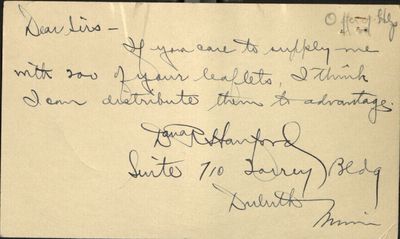 Dear Sirs –
If you care to supply me
with 200 of your leaflets, I think
I can distribute them to advantage.
Dana R Hanford
Suite 710 Torrey Bldg
Duluth
Minn